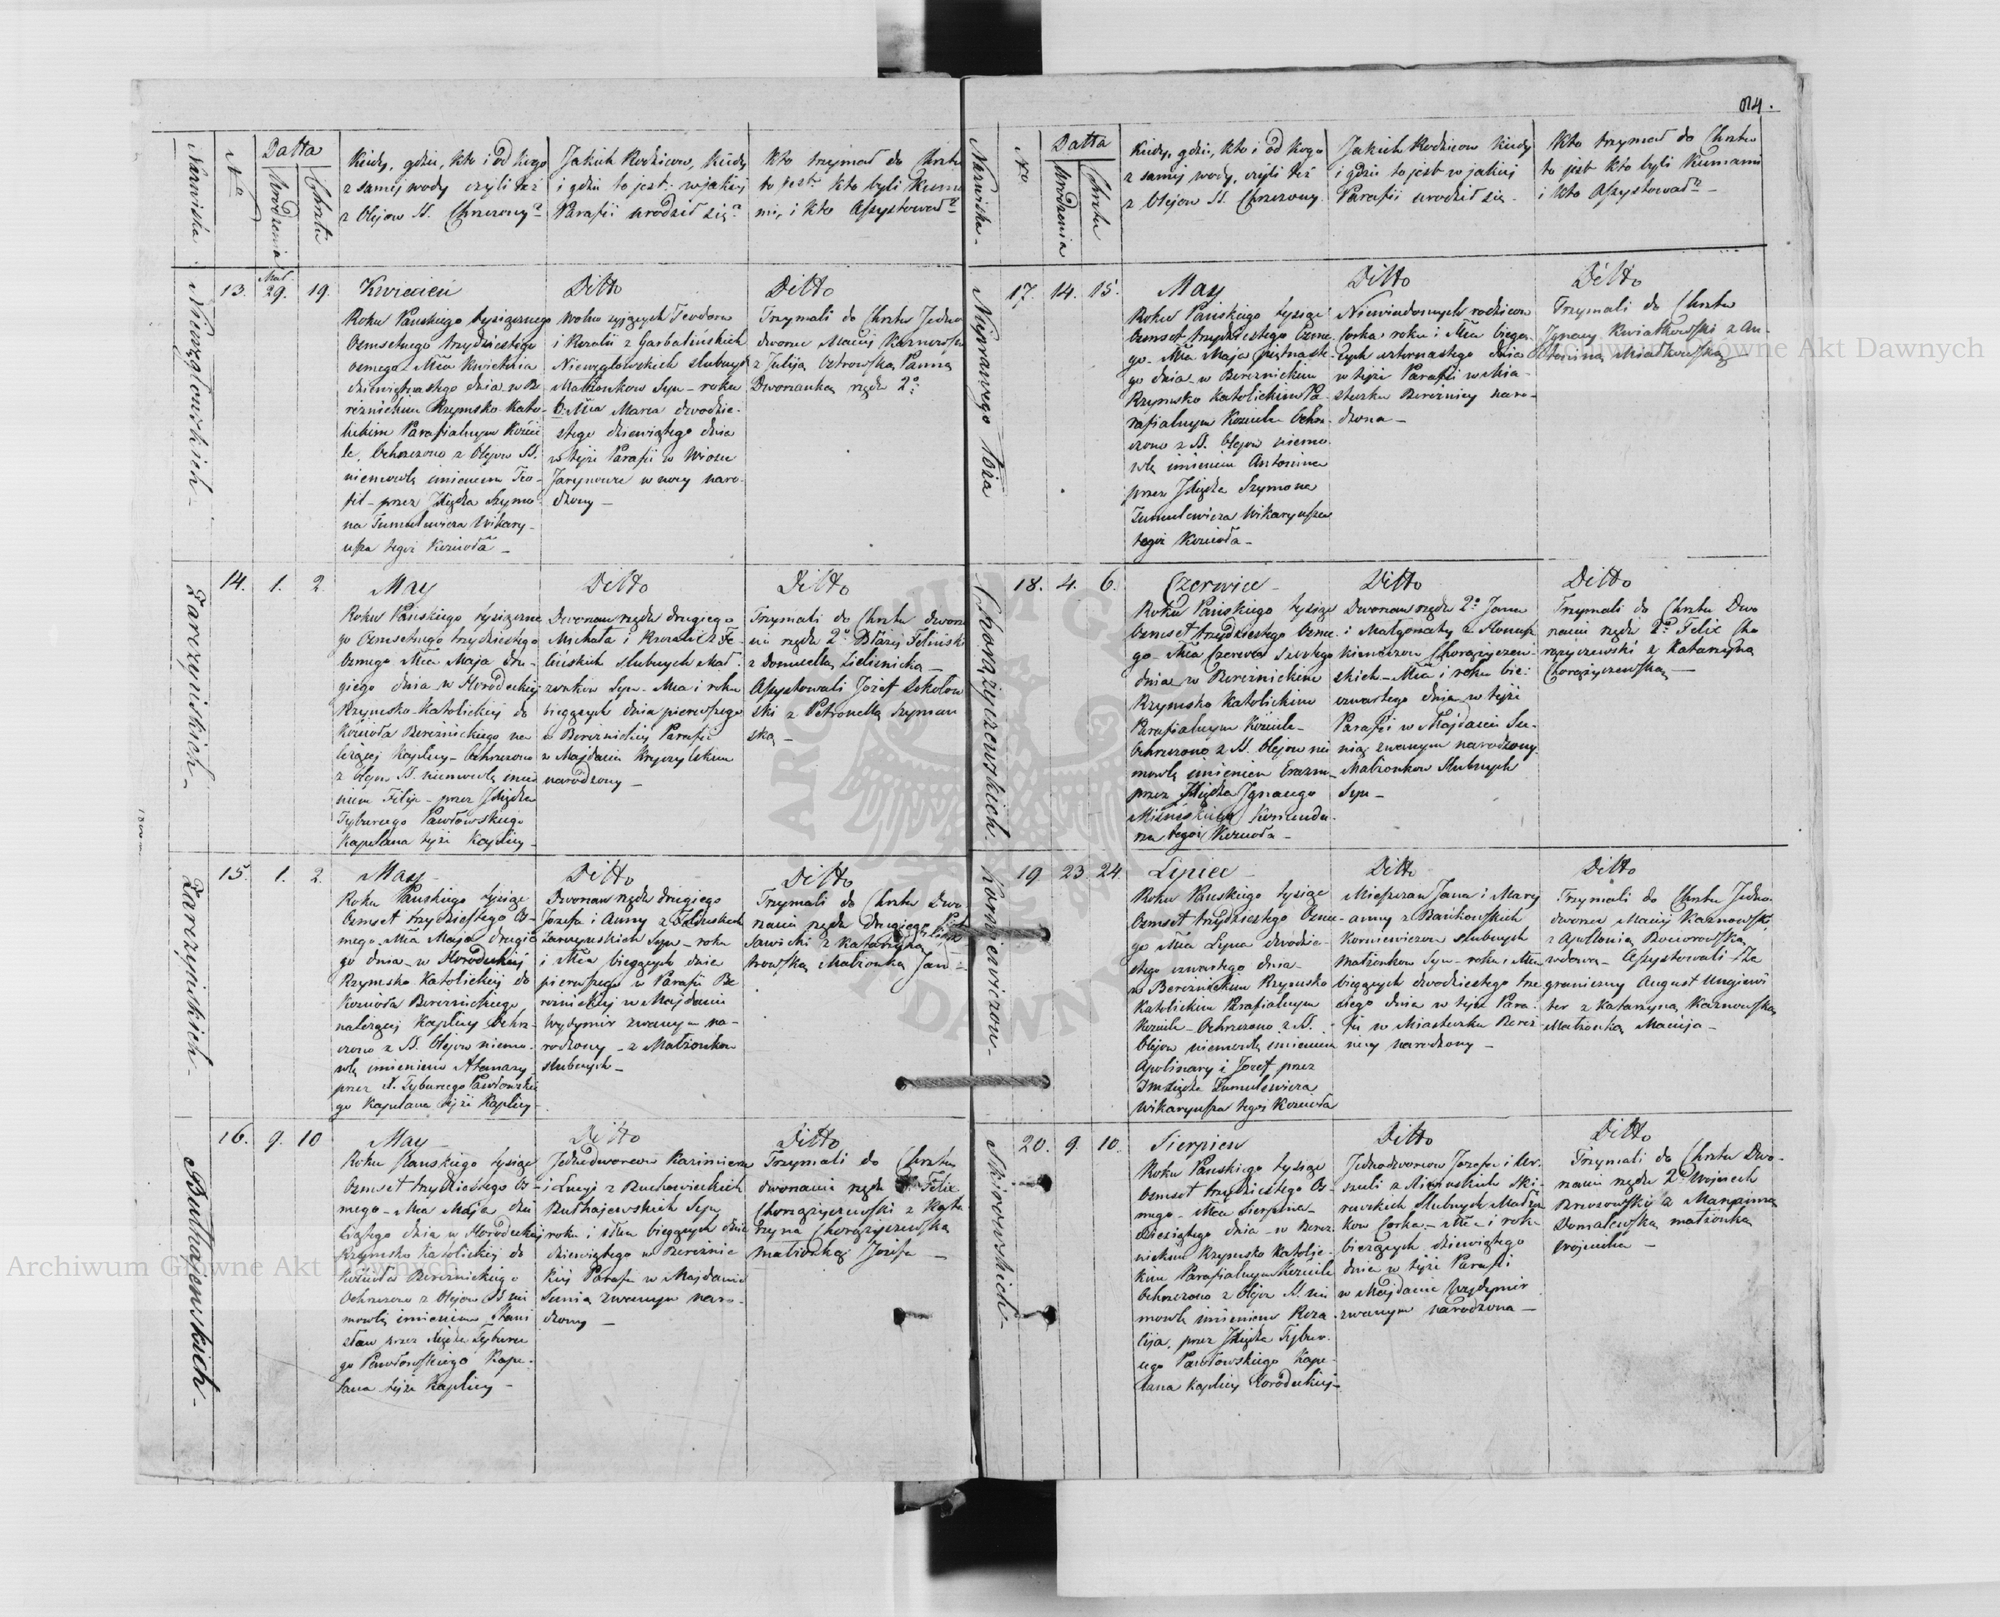 Nazwiska
Nro
Datta
Urodzenia
Chrztu
Kiedy, gdzie, kto i od kogo
z samej wody czyli też
z Olejow SS. Chrzczony?
Jakich Rodzicow, kiedy
i gdzie to jest: w jakiej
Parafii urodził się?
Kto trzymał do Chrztu
to jest: kto byli Kuma
mi, i kto Assystował?
Niewzglowskich
13.
29.
19.
Kwiecień
Roku Pańskiego tysiącznego
Osmsetnego trzydziestego
osmego Mca Kwietnia
dziewiętnastego dnia w Be
reznickim Rzymsko Kato-
lickim Parafialnym Koście
le, Ochrzczono z Olejow SS.
niemowlę imieniem Teo-
fil - przez Xiędza Szymo
na Tumulewicza Wikary-
usza tegoż Kościoła -
Ditto
Wolno żyjących Teodora
i Rozalii z Garbalińskich
Niewzglowskich slubnych
Małżonkow Syn - roku
b. Mca Marca dwodzie-
stego dziewiątego dnia
w tejże Parafii w Wiosce
w nocy naro-
dzony -
Ditto
Trzymali do Chrztu Jedno
dworzec Maciej Karnowski
z Julija Ostrowska Panną
Dworzanką rzędu 2o
Zarczynskich
14.
1.
2.
May
Roku Pańskiego tysiączne
go Osmsetnego trzydziestego
Osmego Mca Maja dru-
giego dnia w Horodeckiej
Rzymsko-Katolickiej do
Kościoła Bereznickiego na
leżącej Kaplicy - Ochrzczono
z Olejow SS. niemowlę imie
niem Filip - przez Xiędza
Tyburcego Pawłowskiego
Kapelana tejże Kaplicy -
Ditto
Dworzan rzędu drugiego
Michała i z Fe-
lińskich slubnych Mał-
zonkow Syn - Mca i roku
bieżących dnia pierwszego
w Bereznickiej Parafii
w Majdanie
narodzony -
Ditto
Trzymali do Chrztu dworza
nin rzędu 2o Błażej Feliński
z Domicellą Zielinicką -
Assystowali Jozef Sokołow
ski z Petronellą Szyman
ską -
Zarczynskich
15.
1.
2.
May
Roku Pańskiego tysiąc
Osmset trzydziestego Os-
mego Mca Maja drugie
go dnia w Horodeckiej
Rzymsko Katolickiej do
Kościoła Bereznickiego
należącej Kaplicy Ochrz-
czono z SS. Olejow niemo-
wlę imieniem Atanazy
przez X. Tyburcego Pawłowskie
go Kapelana tejże Kaplicy -
Ditto
Dworzan rzędu drugiego
Jozefa i Anny z Felińskich
Zarczynskich Syn - roku
i Mca bieżących dnia
pierwszego w Parafii Be
reznickiej w Majdanie
Wydymir zwanym na-
rodzony - z Małżonkow
slubnych -
Ditto
Trzymali do Chrztu Dwo
rzanin rzędu drugiego
Sawicki z Katarzyną
Małżonką
Buthajewskich
16.
9.
10
May
Roku Pańskiego tysiąc
Osmset trzydziestego Os-
mego - Mca Maja dzie
siątego dnia w Horodeckiej
Rzymsko Katolickiej do
Kościoła Bereznickiego
Ochrzczono z Olejow SS nie
mowlę imieniem Stani
sław przez Xiędza Tyburce
go Pawłowskiego Kape-
lana tejże Kaplicy -
Ditto
Jednodworcow Kazimierza
i Łucyi z Ruchowieckich
Buthajewskich Syn
roku i Mca bieżących dnia
dziewiątego w Bereznic
kiej Parafii w Majdanie
Sunia zwanym naro-
dzony -
Ditto
Trzymali do Chrztu
dworzanin rzędu 2o Felix
Chorążyczewski z Kata
rzyną Chorążyczewską
małżonką Jozefa -
84.
Nazwiska
Nro
Datta
Urodzenia
Chrztu
Kiedy, gdzie, kto i od kogo
z samej wody, czyli też
z Olejow SS. Chrzczony
Jakich Rodzicow kiedy
i gdzie to jest w jakiej
Parafii urodził się -
Kto trzymał do Chrztu
to jest kto byli Kumami
i kto Assystował? -
Nieprawego Łoża
17.
14.
15.
May
Roku Pańskiego tysiąc
Osmset trzydziestego Osme
go - Mca Maja piętnaste
go dnia w Bereznickim
Rzymsko Katolickim Pa
rafialnym Kościele Ochrz-
czono z SS. Olejow niemo
wlę imieniem Antonina
przez Xiędza Szymona
Tumulewicza Wikaryusza
tegoż Kościoła -
Ditto
Niewiadomych rodzicow
Corka roku i Mca bieżą-
cych czternastego dnia
w tejże Parafii w Mia-
steczku Bereznicy naro-
dzona -
Ditto
Trzymali do Chrztu
Ignacy Kwiatkowski z An-
toniną Miałkowską -
Chorążyczewskich
18.
4.
6.
Czerwiec
Roku Pańskiego tysiąc
Osmset trzydziestego Osme
go - Mca Czerwca szostego
dnia w Bereznickim
Rzymsko Katolickim
Parafialnym Kościele -
Ochrzczono z SS. Olejow nie
mowlę imieniem Erazm -
przez Xiędza Ignacego
Komenda
rza tegoż Kościoła -
Ditto
Dworzan rzędu 2o Jana
i Małgorzaty z
Chorążyczew-
skich - Mca i roku bie:
czwartego dnia w tejże
Parafii w Majdanie Su-
nią zwanym narodzony
Małżonkow Slubnych
Syn -
Ditto
Trzymali do Chrztu Dwo
rzanin rzędu 2o Felix Cho
rążyczewski z Katarzyną
Chorążyczewską -
Korniewiczow
19
23
24.
Lipiec
Roku Pańskiego tysiąc
Osmset trzydziestego Osme
go Mca Lipca dwodzie-
stego czwartego dnia -
w Bereznickim Rzymsko
Katolickim Parafialnym
Kościele - Ochrzczono z SS.
Olejow niemowlę imieniem
Apolinary i Jozef przez
Tumulewicza
Wikaryusza tegoż Kościoła
Ditto
Mieszczan Jana i Mary
anny z Bańkowskich
Korniewiczow slubnych
Małżonkow Syn - roku i Mca
bieżących dwodziestego trze
ciego dnia w tejże Para-
fii w Miasteczku Berez
nicy narodzony -
Ditto
Trzymali do Chrztu Jedno-
dworzec Maciej Karnowski
z Apollonią
wdową - Assystowali Za
graniczny August
z Katarzyną Karnowską
Małżonką Macieja -
Skirowskich
20.
9.
10.
Sierpień
Roku Pańskiego tysiąc
Osmset trzydziestego Os-
mego - Mca Sierpnia -
dziesiątego dnia - w Berez
nickim Rzymsko Katolic-
kim Parafialnym Kościele
Ochrzczono z Olejow SS. nie
mowlę imieniem Roza
lija, przez Xiędza Tybur-
cego Pawłowskiego Kape-
lana Kaplicy Horodeckiej -
Ditto
Jednodworcow Jozefa i Ur-
szuli z Ski-
rowskich Slubnych Małżon
kow Corka - Mca i roku
bieżących dziewiątego
dnia w tejże Parafii
w Majdanie Wydymir
zwanym narodzona -
Ditto
Trzymali do Chrztu Dwo-
rzanin rzędu 2o Wojciech
Brzozowski z Maryanną
Domalewską małżonką
Wojciecha -
Archiwum Główne Akt Dawnych
Archiwum Główne Akt Dawnych